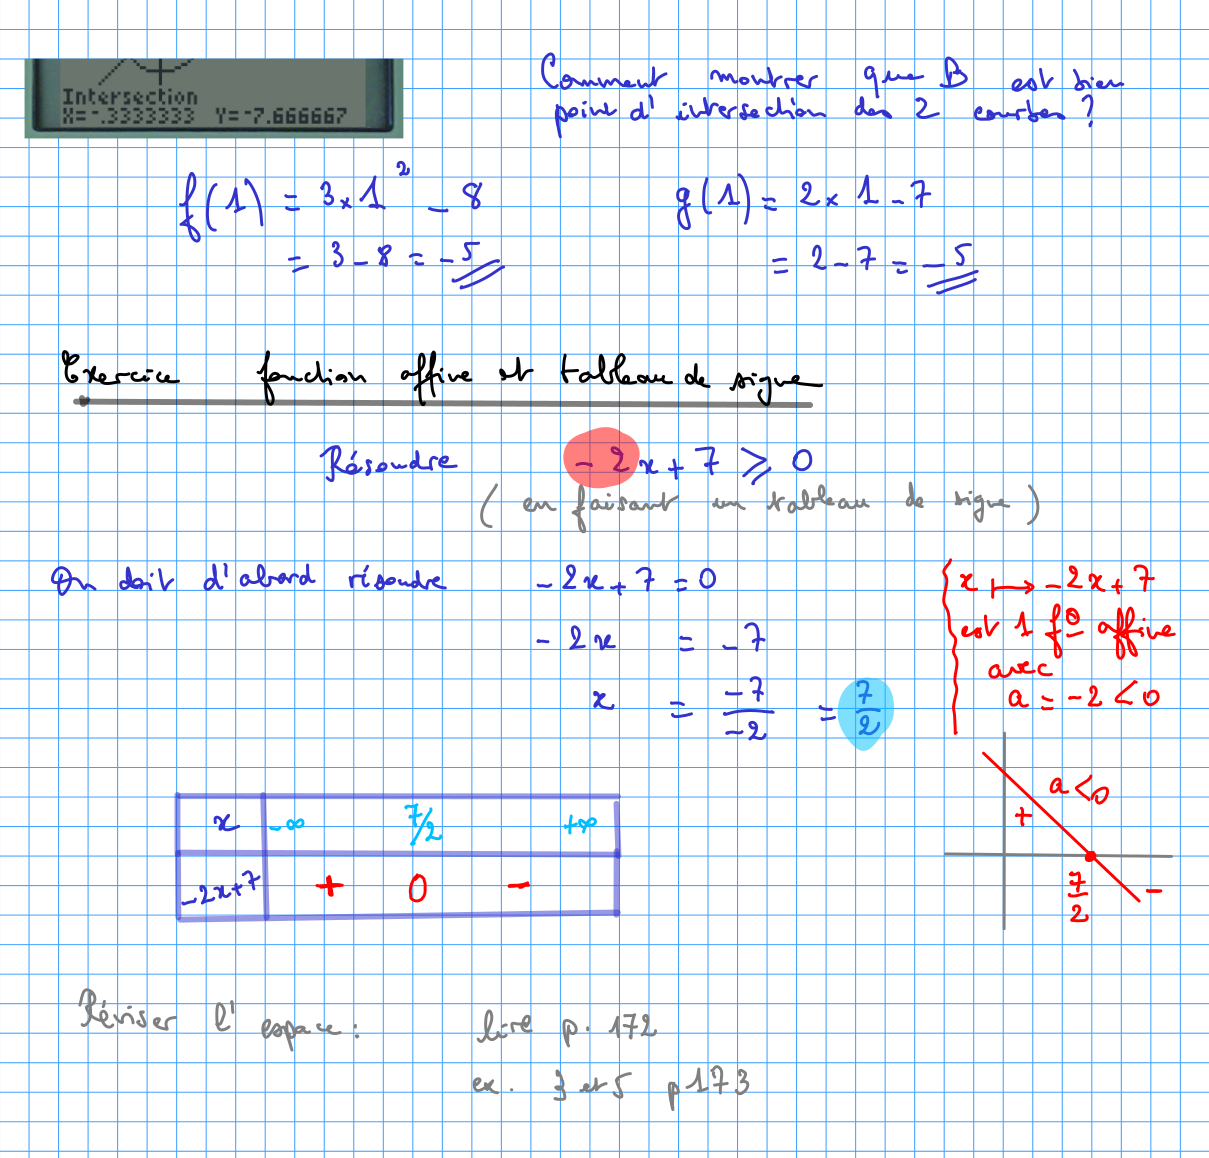 Intersection
X=-.3333333 Y=-7.666667
Comment montrer que B est bien
point d'intersection des 2 courbes ?
f(1) = 3×1² - 8
= 3 - 8 = -5
g(1) = 2×1 - 7
= 2 - 7 = -5
Exercice fonction affine et tableau de signe
Résoudre -2x + 7 ⩾ 0
(en faisant un tableau de signe)
On doit d'abord résoudre -2x + 7 = 0
-2x = -7
x = -7/-2 = 7/2
x ⟼ -2x + 7
est 1 f° affine
avec
a = -2 < 0
a < 0
+
7/2
-
x -∞ 7/2 +∞
-2x+7 + 0 -
Réviser l'espace : lire p. 172
ex. 3 et 5 p 173